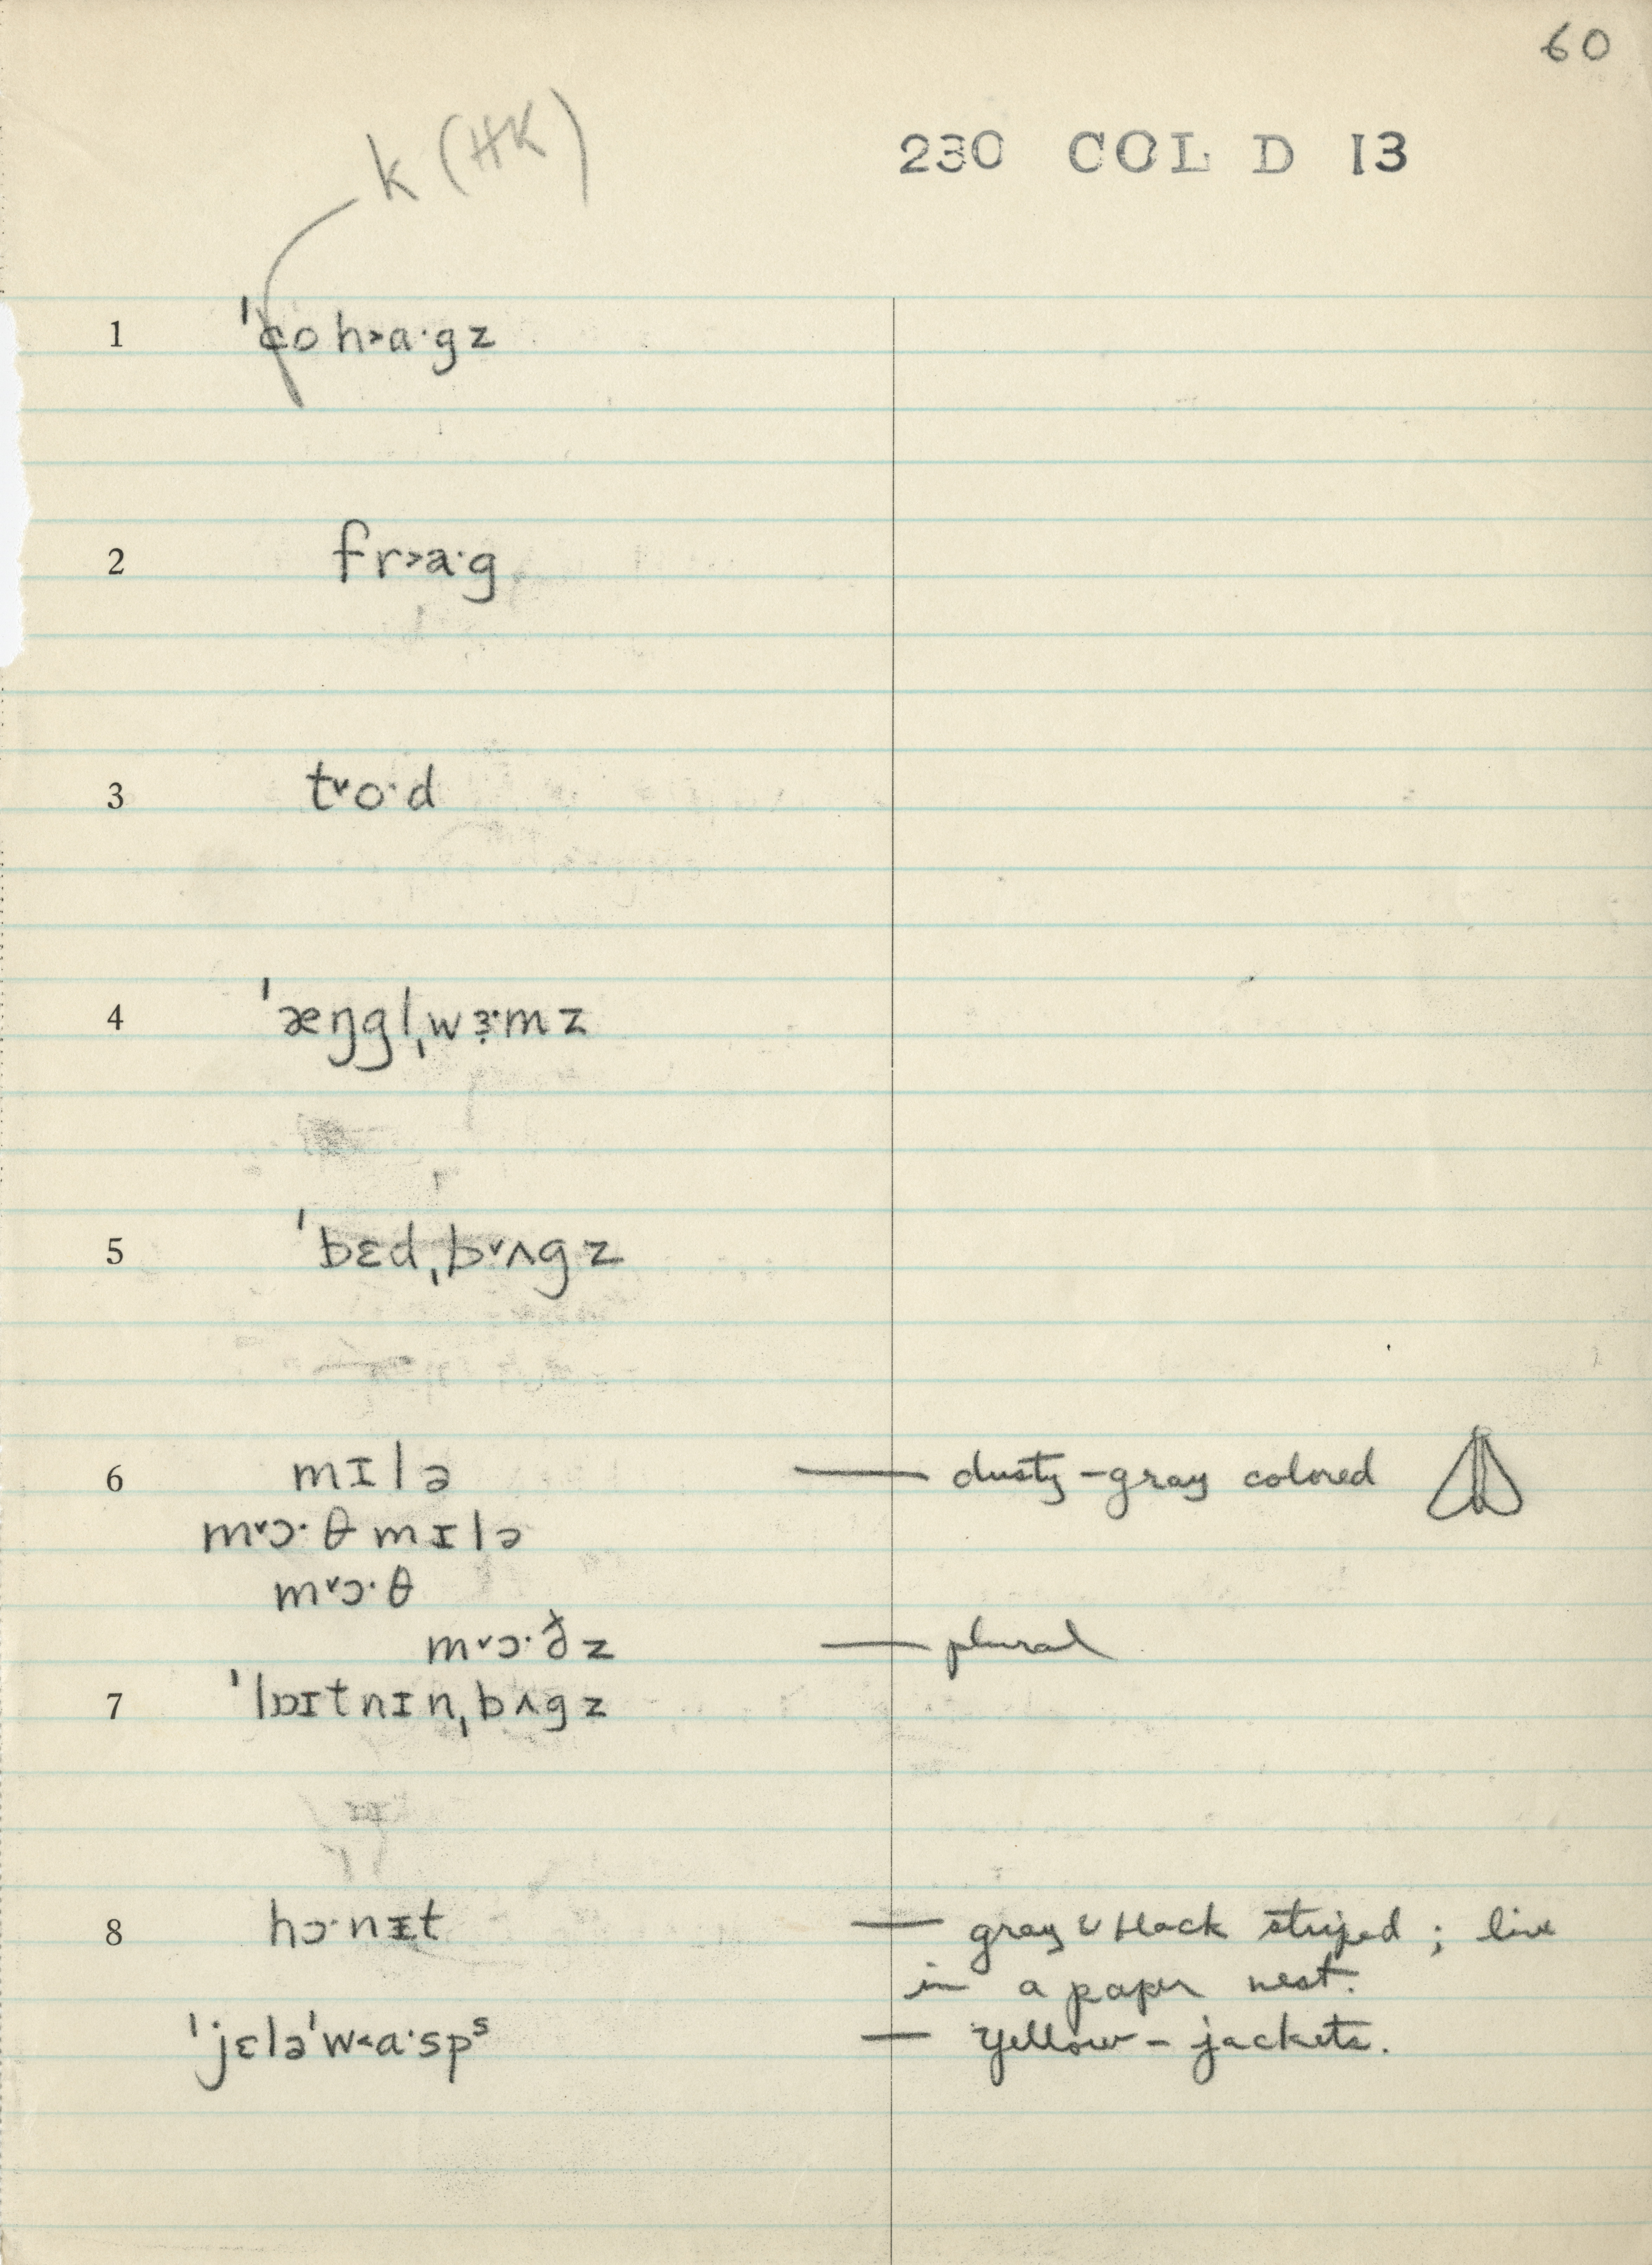 60
k (HK)
230 COL D 13
1 ˈco h˃a·gz
2 fr˃a·g
3 t˅o·d
4 ˈæŋgl̩ˌwɜ·mz
5 ˈbɛdˌb˅ʌgz
6 mɪlə — dusty-gray colored
m˅ɔ·θ mɪlə
m˅ɔ·θ
m˅ɔ·ðz — plural
7 ˈlɒɪtnɪnˌbʌgz
8 hɔ·nɪt — gray & black striped ; live
in a paper nest.
ˈjɛləˈw˂a·spˢ — yellow-jackets.